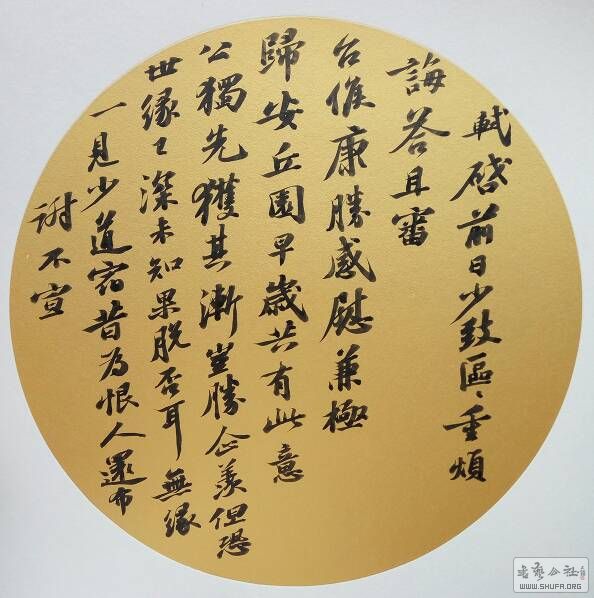 軾啓前日少致區〻重煩
誨答且審
台候康勝感慰兼極
歸安丘園早歲共有此意
公獨先獲其漸豈勝企羨但恐
世緣已深未知果脫否耳無緣
一見少道宿昔為恨人還布
謝不宣
WWW.SHUFA.ORG